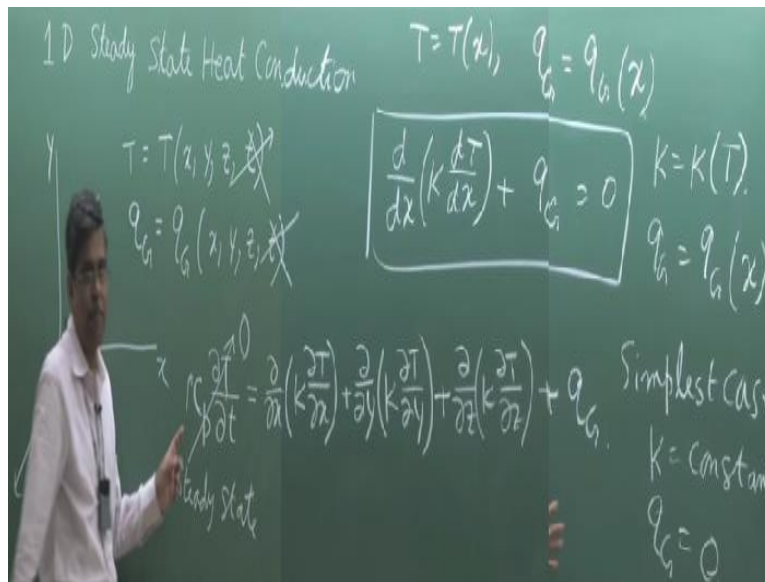 1D Steady State Heat Conduction
T = T(x), q_G = q_G(x)
y
T = T(x, y, z, t)
q_G = q_G(x, y, z, t)
d/dx (K dT/dx) + q_G = 0
K = K(T).
q_G = q_G(x)
x
ρC_p ∂T/∂t → 0 = ∂/∂x (K ∂T/∂x) + ∂/∂y (K ∂T/∂y) + ∂/∂z (K ∂T/∂z) + q_G.
Steady state
Simplest Cas
K = Constan
q_G = 0